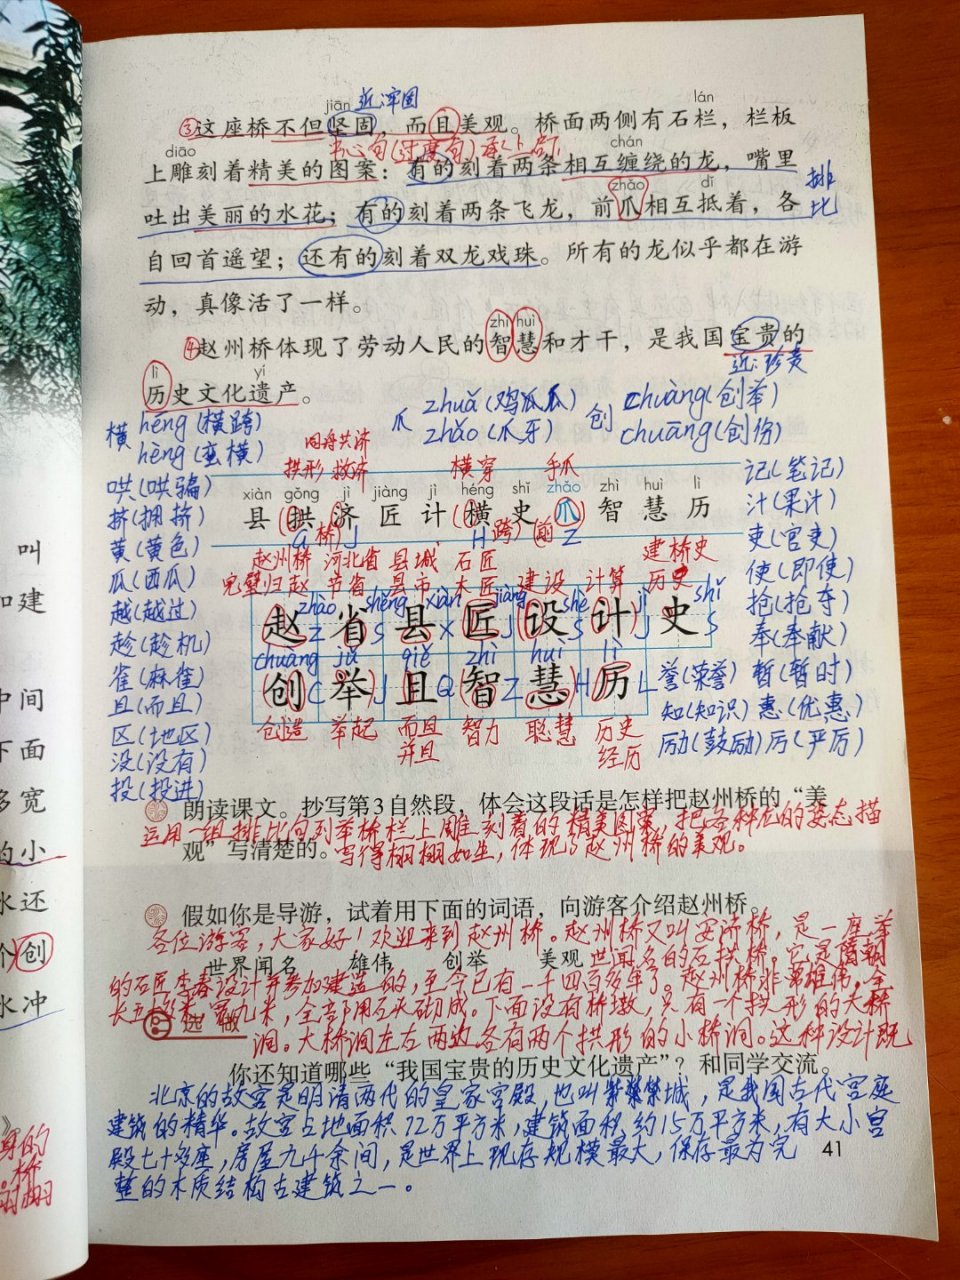 jiān 近:牢固 lán
③这座桥不但坚固，而且美观。桥面两侧有石栏，栏板
diāo 中心句(过渡句) 承上启下 chán
上雕刻着精美的图案：有的刻着两条相互缠绕的龙，嘴里 排比
zhǎo dǐ
吐出美丽的水花；有的刻着两条飞龙，前爪相互抵着，各
自回首遥望；还有的刻着双龙戏珠。所有的龙似乎都在游
动，真像活了一样。
zhì huì
④赵州桥体现了劳动人民的智慧和才干，是我国宝贵的
近:珍贵
lì yí
历史文化遗产。
横 héng(横跨)
hèng(蛮横)
爪 zhuǎ(鸡爪爪)
zhǎo(爪牙)
创 chuàng(创举)
chuāng(创伤)
同舟共济
拱形 救济 横穿 手爪
xiàn gǒng jì jiàng jì héng shǐ zhǎo zhì huì lì
县 拱 济 匠 计 横 史 爪 智 慧 历
G 桥 J H 跨 前 Z
赵州桥 河北省 县城 石匠 建桥史
完璧归赵 节省 县市 大匠 建设 计算 历史
zhào shěng xiàn jiàng shè jì shǐ
赵 省 县 匠 设 计 史
Z S X J S J S
chuàng jǔ qiě zhì huì lì
创 举 且 智 慧 历
C J Q Z H L
创造 举起 而且 智力 聪慧 历史
并且 经历
哄(哄骗)
挤(拥挤)
黄(黄色)
瓜(西瓜)
越(越过)
趁(趁机)
雀(麻雀)
且(而且)
区(地区)
没(没有)
投(投进)
记(笔记)
汁(果汁)
吏(官吏)
使(即使)
抢(抢夺)
奉(奉献)
誉(荣誉) 暂(暂时)
知(知识) 惠(优惠)
励(鼓励) 厉(严厉)
朗读课文。抄写第3自然段，体会这段话是怎样把赵州桥的“美
运用一组排比句列举桥栏上雕刻着的精美图案，把各种龙的姿态描
观”写清楚的。
写得栩栩如生，体现了赵州桥的美观。
假如你是导游，试着用下面的词语，向游客介绍赵州桥。
各位游客，大家好！欢迎来到赵州桥。赵州桥又叫安济桥，是一座举
世界闻名 雄伟 创举 美观
世闻名的石拱桥。它是隋朝
的石匠李春设计并参加建造的，至今已有一千四百多年了。赵州桥非常雄伟，全
长五十多米，宽九米，全部用石头砌成。下面没有桥墩，只有一个拱形的大桥
选做
洞。大桥洞左右两边各有两个拱形的小桥洞。这种设计既
你还知道哪些“我国宝贵的历史文化遗产”？和同学交流。
北京的故宫是明清两代的皇家宫殿，也叫紫禁城，是我国古代宫庭
建筑的精华。故宫占地面积72万平方米，建筑面积约15万平方米，有大小宫
殿七十多座，房屋九千余间，是世界上现存规模最大，保存最为完
整的木质结构古建筑之一。
41
叫
和建
中间
下面
多宽
的小
水还
个创
水冲
身的
桥
栩栩